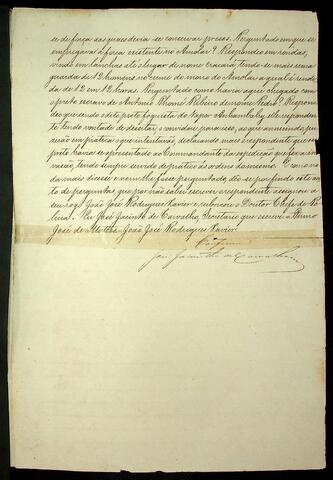 se de força aos quaes devia se conservar presos. Perguntado em que se
empregava a força existente no Amolar? Respondeo em rondas,
vindo em lanchas até o lugar de nome Caracará, tendo-se mais uma
guarda de 12 homens no cume do morro do Amolar a qual é rendi-
da de 12 em 12 horas. Perguntado como havia aqui chegado com
o preto escravo de Antonio Thomé Ribeiro de nome Pedro? Respon-
deo que sendo este preto foguista do Vapor Anhambahy elle responden-
te tendo vontade de desertar o convidou para isso, ao que annuindo, pu-
zerão em pratica o que intentavão, declarando mais o respondente que o
preto havia se apresentado ao Commandante da expedição que fez a in-
vasão, tendo sempre servido de pratico ás ordens do mesmo. E como na-
da mais dissesse e nem lhe fosse perguntado deo-se por findo este au-
to de perguntas, que por não saber escrever o respondente assignou a
seu rogo João José Rodrigues Xavier e rubricou o Doutor Chefe de Po-
licia. Eu José Jacintho de Carvalho, Secretario que escrevi.
José de João José Rodrigues Xavier.
José Jacintho de Carvalho